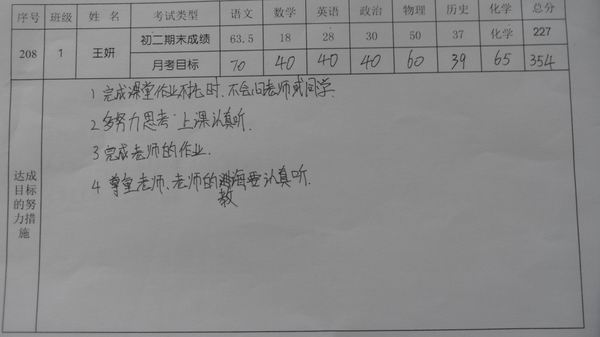 序号 班级 姓名 考试类型 语文 数学 英语 政治 物理 历史 化学 总分
208 1 王妍 初二期末成绩 63.5 18 28 30 50 37 化学 227
月考目标 70 40 40 40 60 39 65 354
达成目标的努力措施
1 完成课堂作业不拖时,不会问老师或同学.
2 多努力思考 上课认真听.
3 完成老师的作业.
4 尊重老师、老师的教海要认真听.